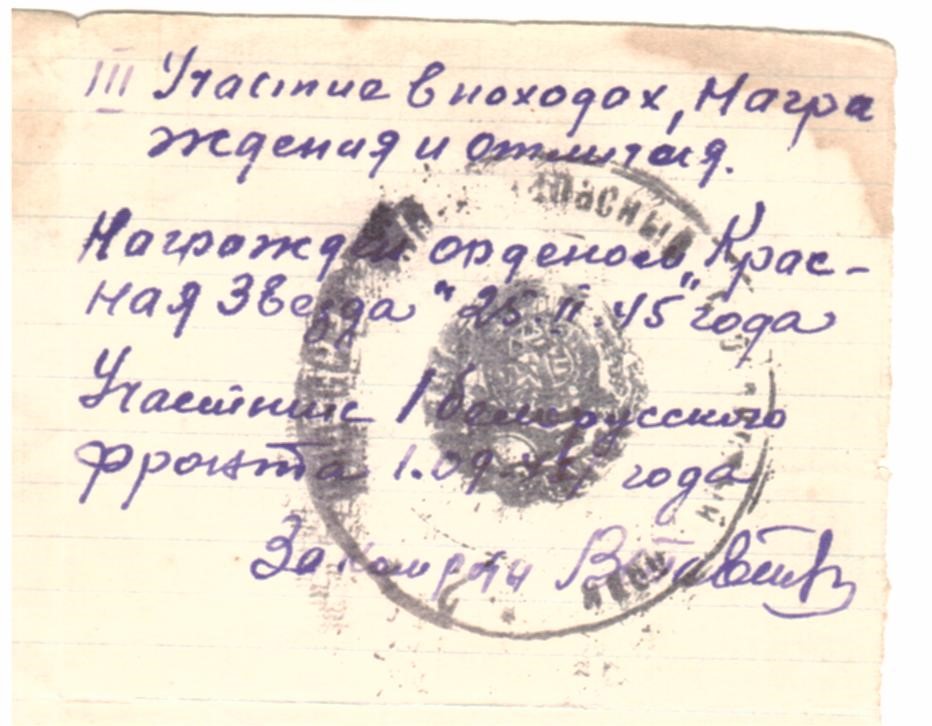 III Участие в походах, Награ
ждения и отличия.
Награжден орденом „Крас-
ная Звезда" 25.II.45 года
Участник 1 белорусского
фронта года
За